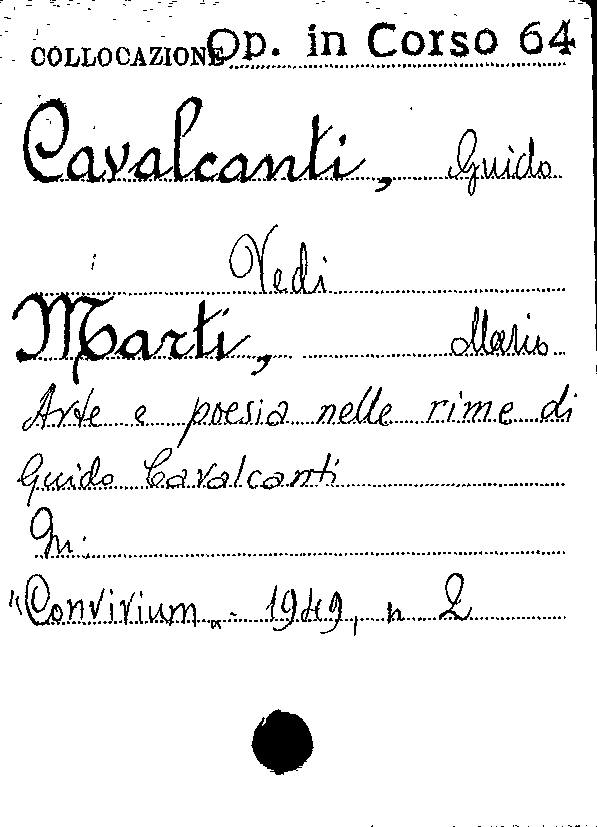 COLLOCAZIONE Op. in Corso 64
Cavalcanti, Guido
Vedi
Marti, Mario
Arte e poesia nelle rime di
Guido Cavalcanti
In:
"Convivium„. 1949, n 2